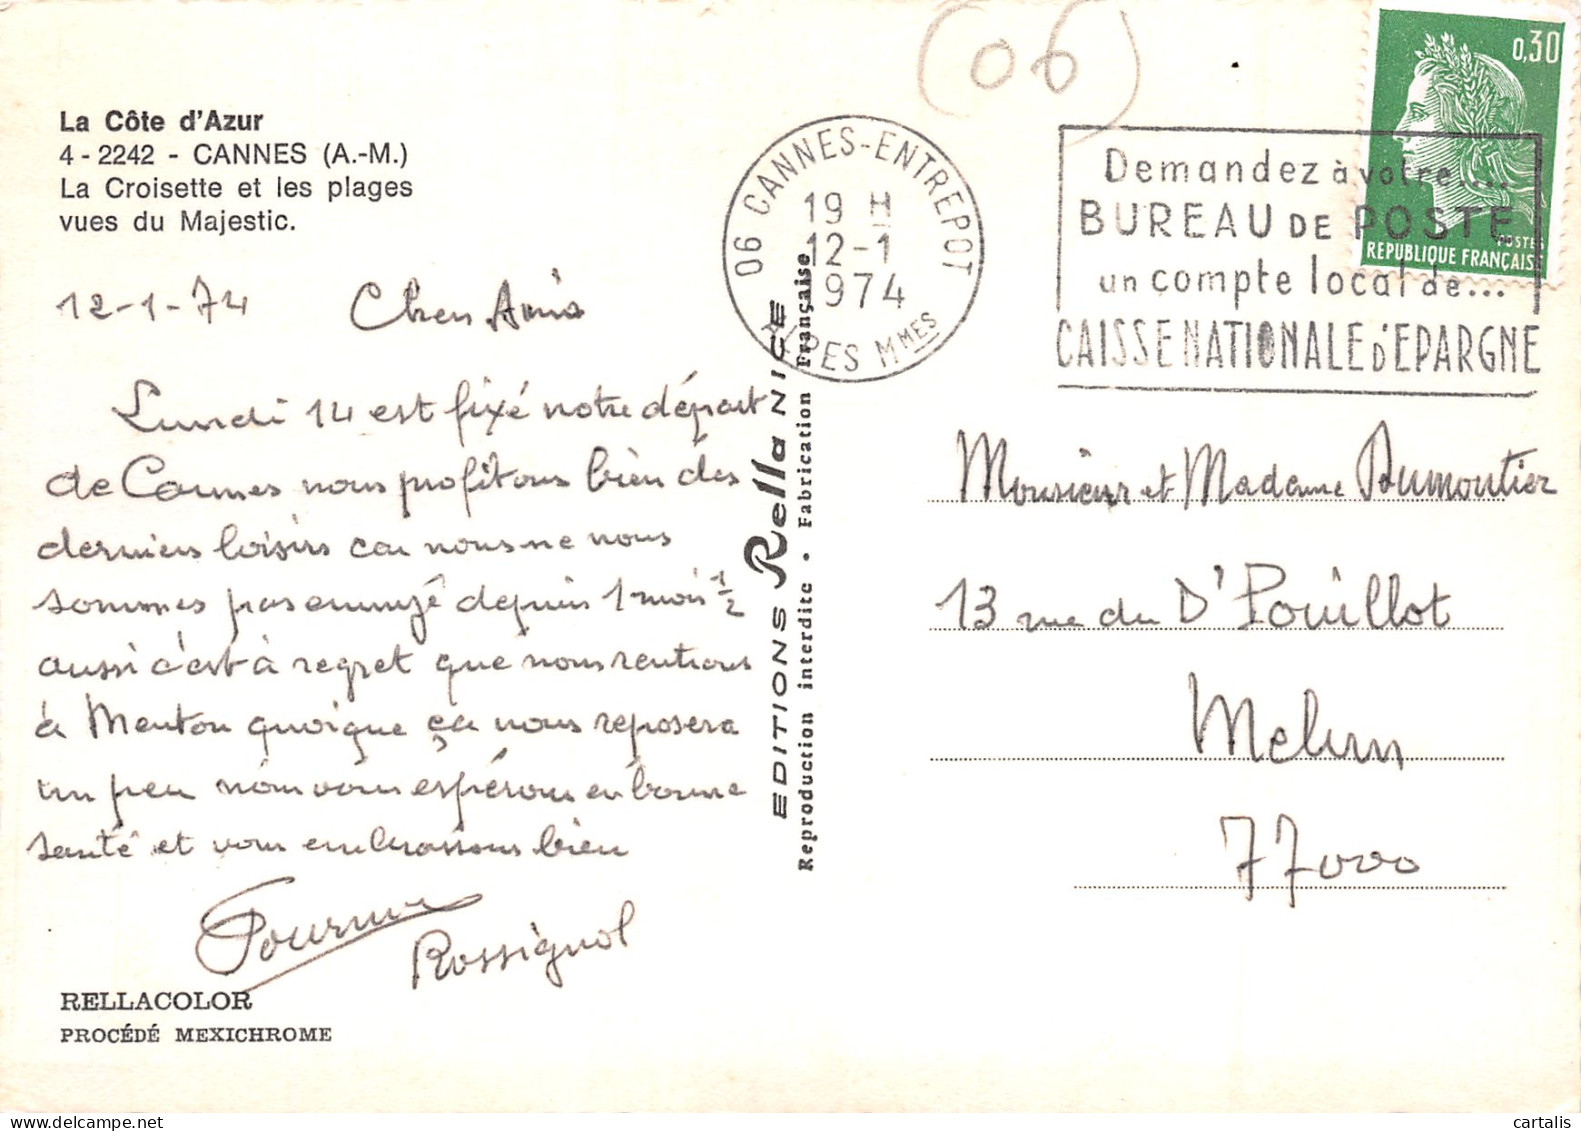 (06)
0,30
POSTES
REPUBLIQUE FRANÇAISE
La Côte d'Azur
4 - 2242 - CANNES (A.-M.)
La Croisette et les plages
vues du Majestic.
06 CANNES-ENTREPOT
19 H
12-1
1974
ALPES MMES
Demandez à votre....
BUREAU DE POSTE
un compte local de...
CAISSE NATIONALE D'EPARGNE
12-1-74 Chers Amis
Lundi 14 est fixé notre départ
de Cannes nous profitons bien des
derniers loisirs car nous ne nous
sommes pas ennuyé depuis 1 mois 1/2
aussi c'est à regret que nous rentrons
à Menton quoique ça nous reposera
un peu nous vous espérons en bonne
santé et vous embrassons bien
Fournier
Rossignol
RELLACOLOR
PROCÉDÉ MEXICHROME
EDITIONS Rella NICE
Reproduction interdite • Fabrication Française
Monsieur et Madame Dumoutier
13 rue du Dr Pouillot
Melun
77000
cartalis